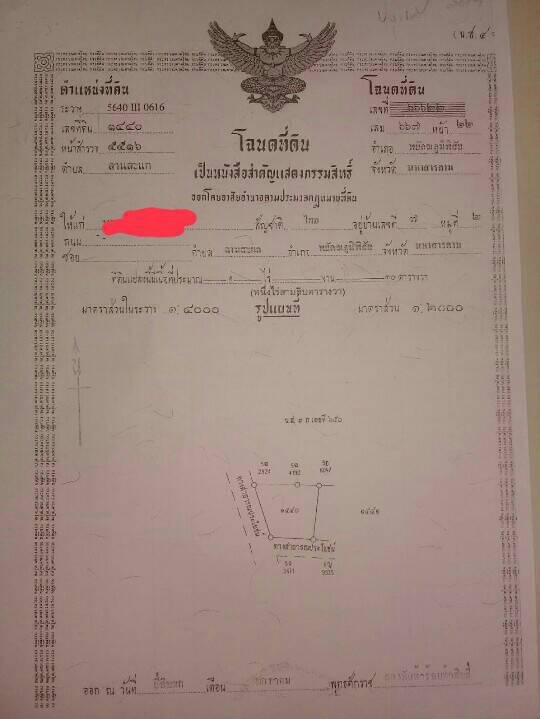 (น.ส.๔
ตำแหน่งที่ดิน
ระวาง 5640 III 0616
เลขที่ดิน ๑๔๔๐
หน้าสำรวจ ๕๕๑๖
ตำบล ลานสะแก
โฉนดที่ดิน
เลขที่ ๖๖๖๒๒
เล่ม ๖๖๗ หน้า ๒๒
อำเภอ พยัคฆภูมิพิสัย
จังหวัด มหาสารคาม
โฉนดที่ดิน
เป็นหนังสือสำคัญแสดงกรรมสิทธิ์
ออกโดยอาศัยอำนาจตามประมวลกฎหมายที่ดิน
ให้แก่ สัญชาติ ไทย อยู่บ้านเลขที่ ๗ หมู่ที่ ๒
ถนน
ซอย ตำบล ลานสะแก อำเภอ พยัคฆภูมิพิสัย จังหวัด มหาสารคาม
ที่ดินแปลงนี้มีเนื้อที่ประมาณ ๑ ไร่ งาน ๓๐ ตารางวา
(หนึ่งไร่สามสิบตารางวา)
มาตราส่วนในระวาง ๑:๔๐๐๐ รูปแผนที่ มาตราส่วน ๑:๒๐๐๐
น.ส. ๓ ก เลขที่ ๖๕๐
๑๔๔๐
ทางสาธารณประโยชน์
ทางสาธารณประโยชน์
ออก ณ วันที่ ยี่สิบหก เดือน มกราคม พุทธศักราช สองพันห้าร้อยห้าสิบสี่